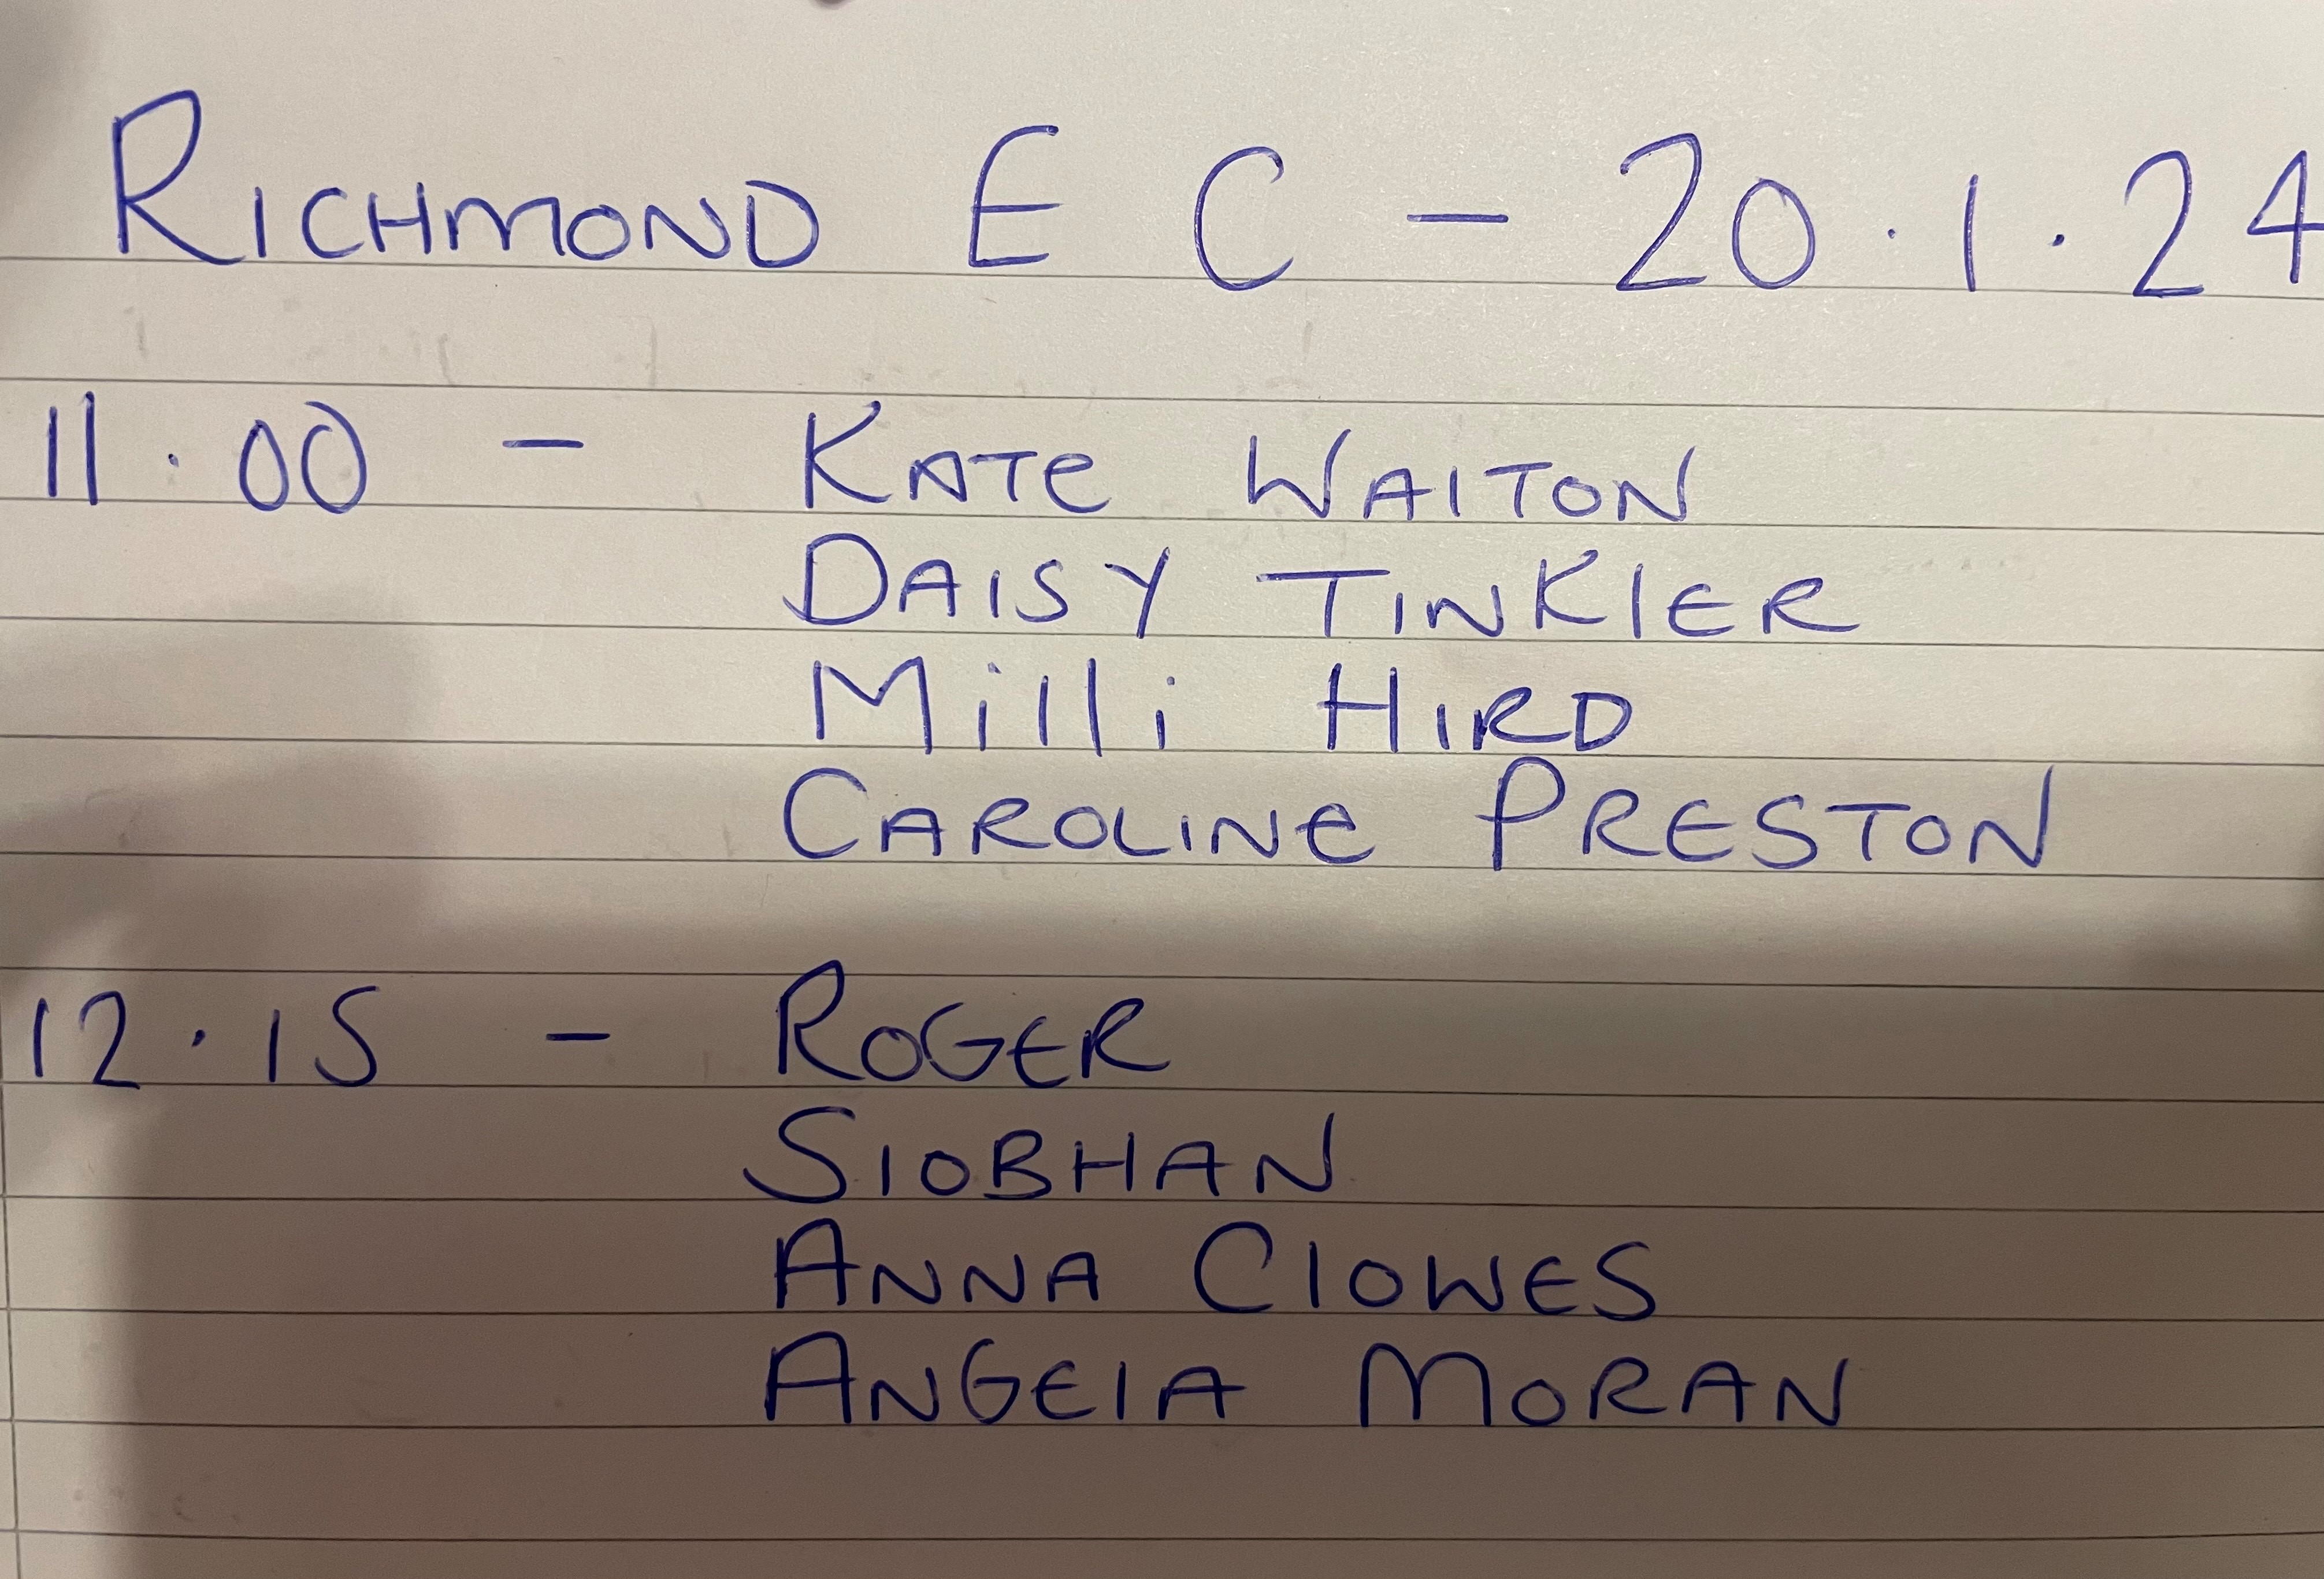 RICHMOND E C - 20.1.24
11.00 - KATE WALTON
DAISY TINKLER
Milli HIRD
CAROLINE PRESTON
12.15 - ROGER
SIOBHAN
ANNA ClOWES
ANGElA MORAN